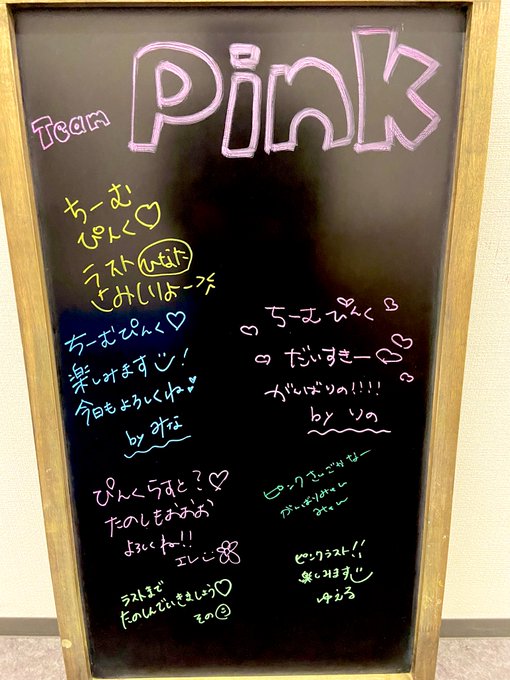 Team Pink
ちーむ
ぴんく♡
ラスト ひなた
さみしいよー
ちーむぴんく♡
楽しみます!
今日もよろしくね
by みな
ちーむぴんく
だいすきー♡
がんばりの!!!!
by りの
ぴんくらすと?♡
たのしもおおお
よろしくね!!
エレ
ピンクさいごかなー
がんばりみゃん
みゃん
ラストまで
たのしんでいきましょう♡
その
ピンクラスト!!
楽しみます
ゆえる